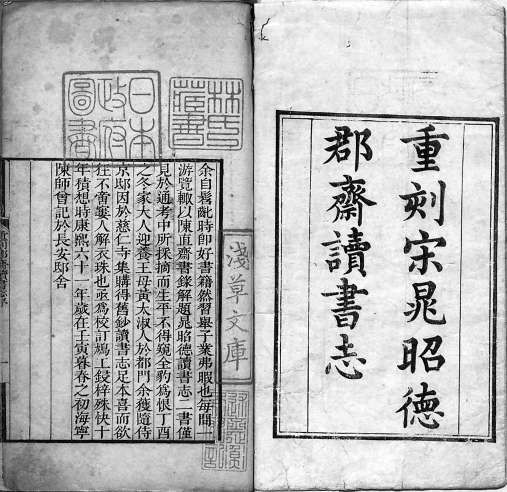 重刻宋晁昭德
郡齋讀書志
余自髫齔時即好書籍然習舉子業弗暇也每閒一
游覽輙以陳直齋書錄解題晁昭德讀書志二書僅
見於通考中所採摘而生平不得窺全豹為恨丁酉
之冬家大人迎養王母黃太淑人於都門余獲隨侍
京邸因於慈仁寺集購得舊鈔讀書志足本喜而欲
狂不啻寠人解衣珠也亟為校訂鳩工鋟梓殊快十
年積想時康熙六十一年歲在壬寅暮春之初海寧
陳師曾記於長安邸舍
林氏
藏書
日本
政府
圖書
淺草文庫